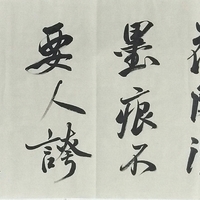 墨痕不
要人誇